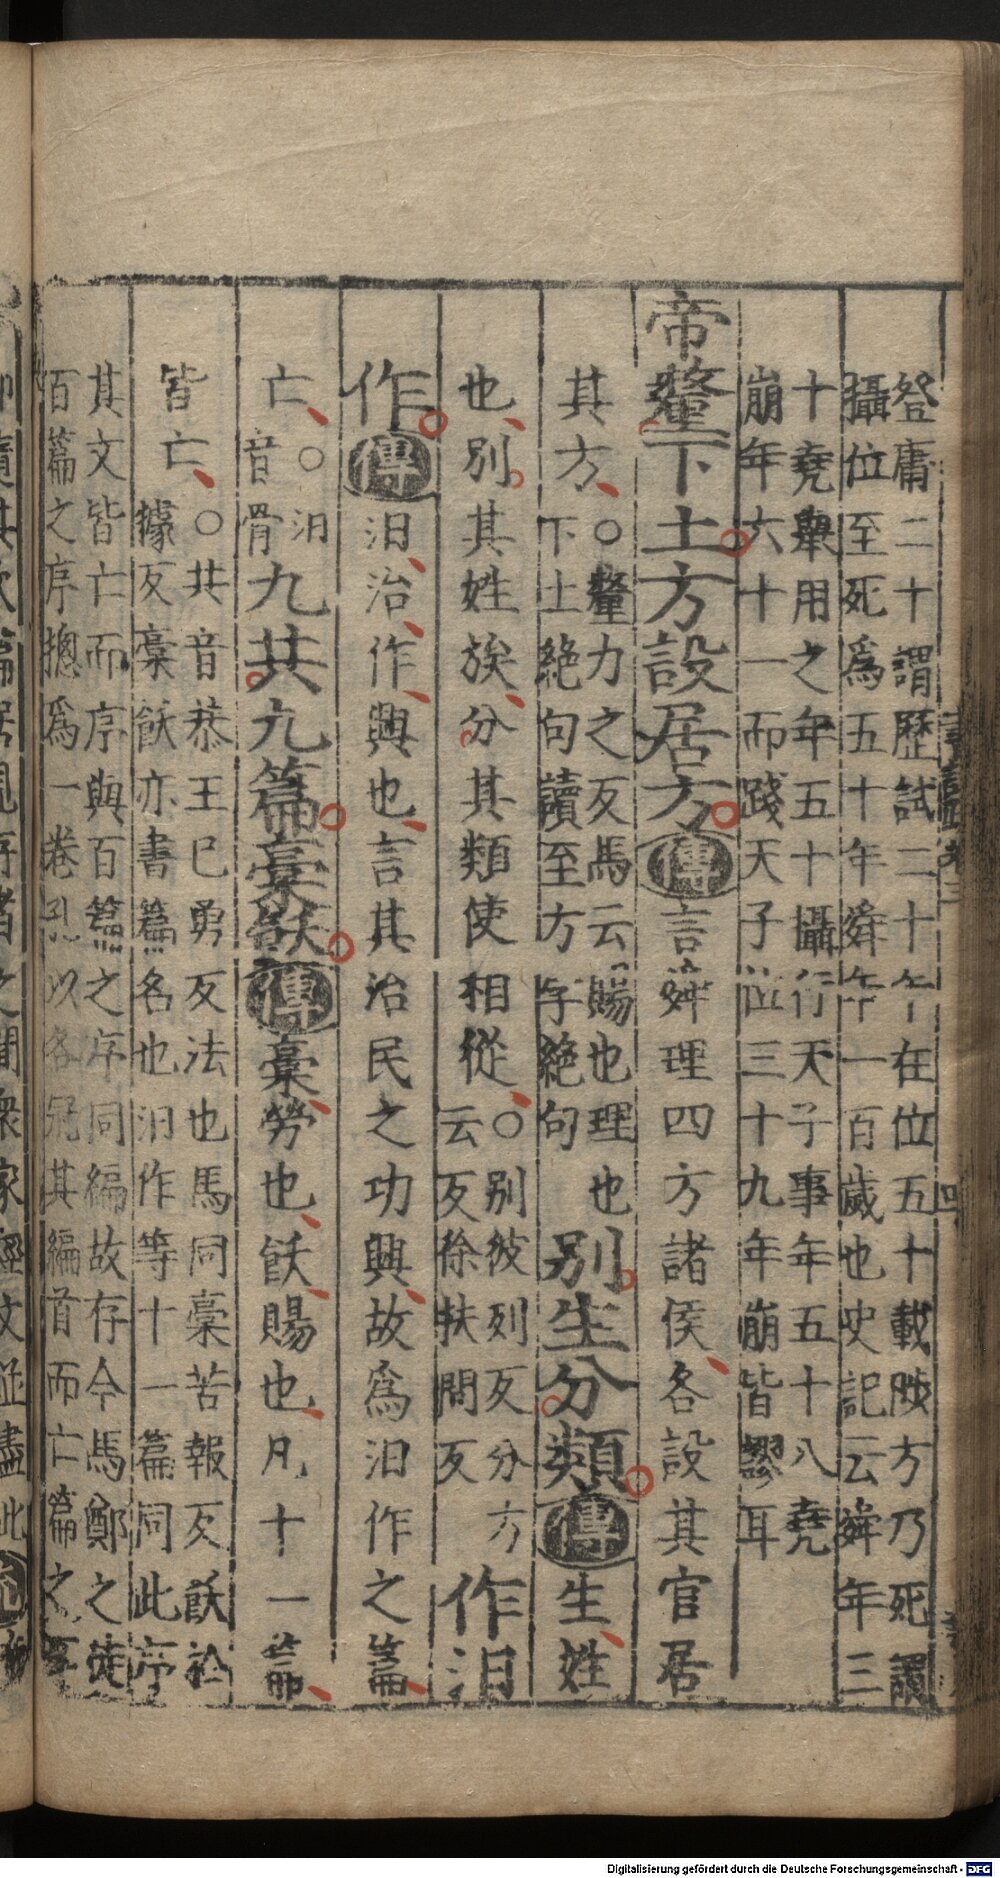 登庸二十謂歷試二十年在位五十載陟方乃死謂
攝位至死爲五十年舜年一百歲也史記云舜年三
十堯舉用之年五十攝行天子事年五十八堯
崩年六十一而踐天子位三十九年崩皆謬耳
帝釐下土方設居方傳言舜理四方諸侯各設其官居
其方
○釐力之反馬云賜也理也
下土絶句讀至方字絶句
别生分類傳生姓
也别其姓族分其類使相從
○别彼列反分方
云反徐扶問反
作汨
作傳汨治作興也言其治民之功興故爲汨作之篇
亡
○汨
音骨
九共九篇稾飫傳稾勞也飫賜也凡十一篇
皆亡
○共音恭王已勇反法也馬同稾苦報反飫於
據反稾飫亦書篇名也汨作等十一篇同此序
其文皆亡而序與百篇之序同編故存今馬鄭之徒
百篇之序摠爲一卷孔以各冠其編首而亡篇之序
Digitalisierung gefördert durch die Deutsche Forschungsgemeinschaft - DFG